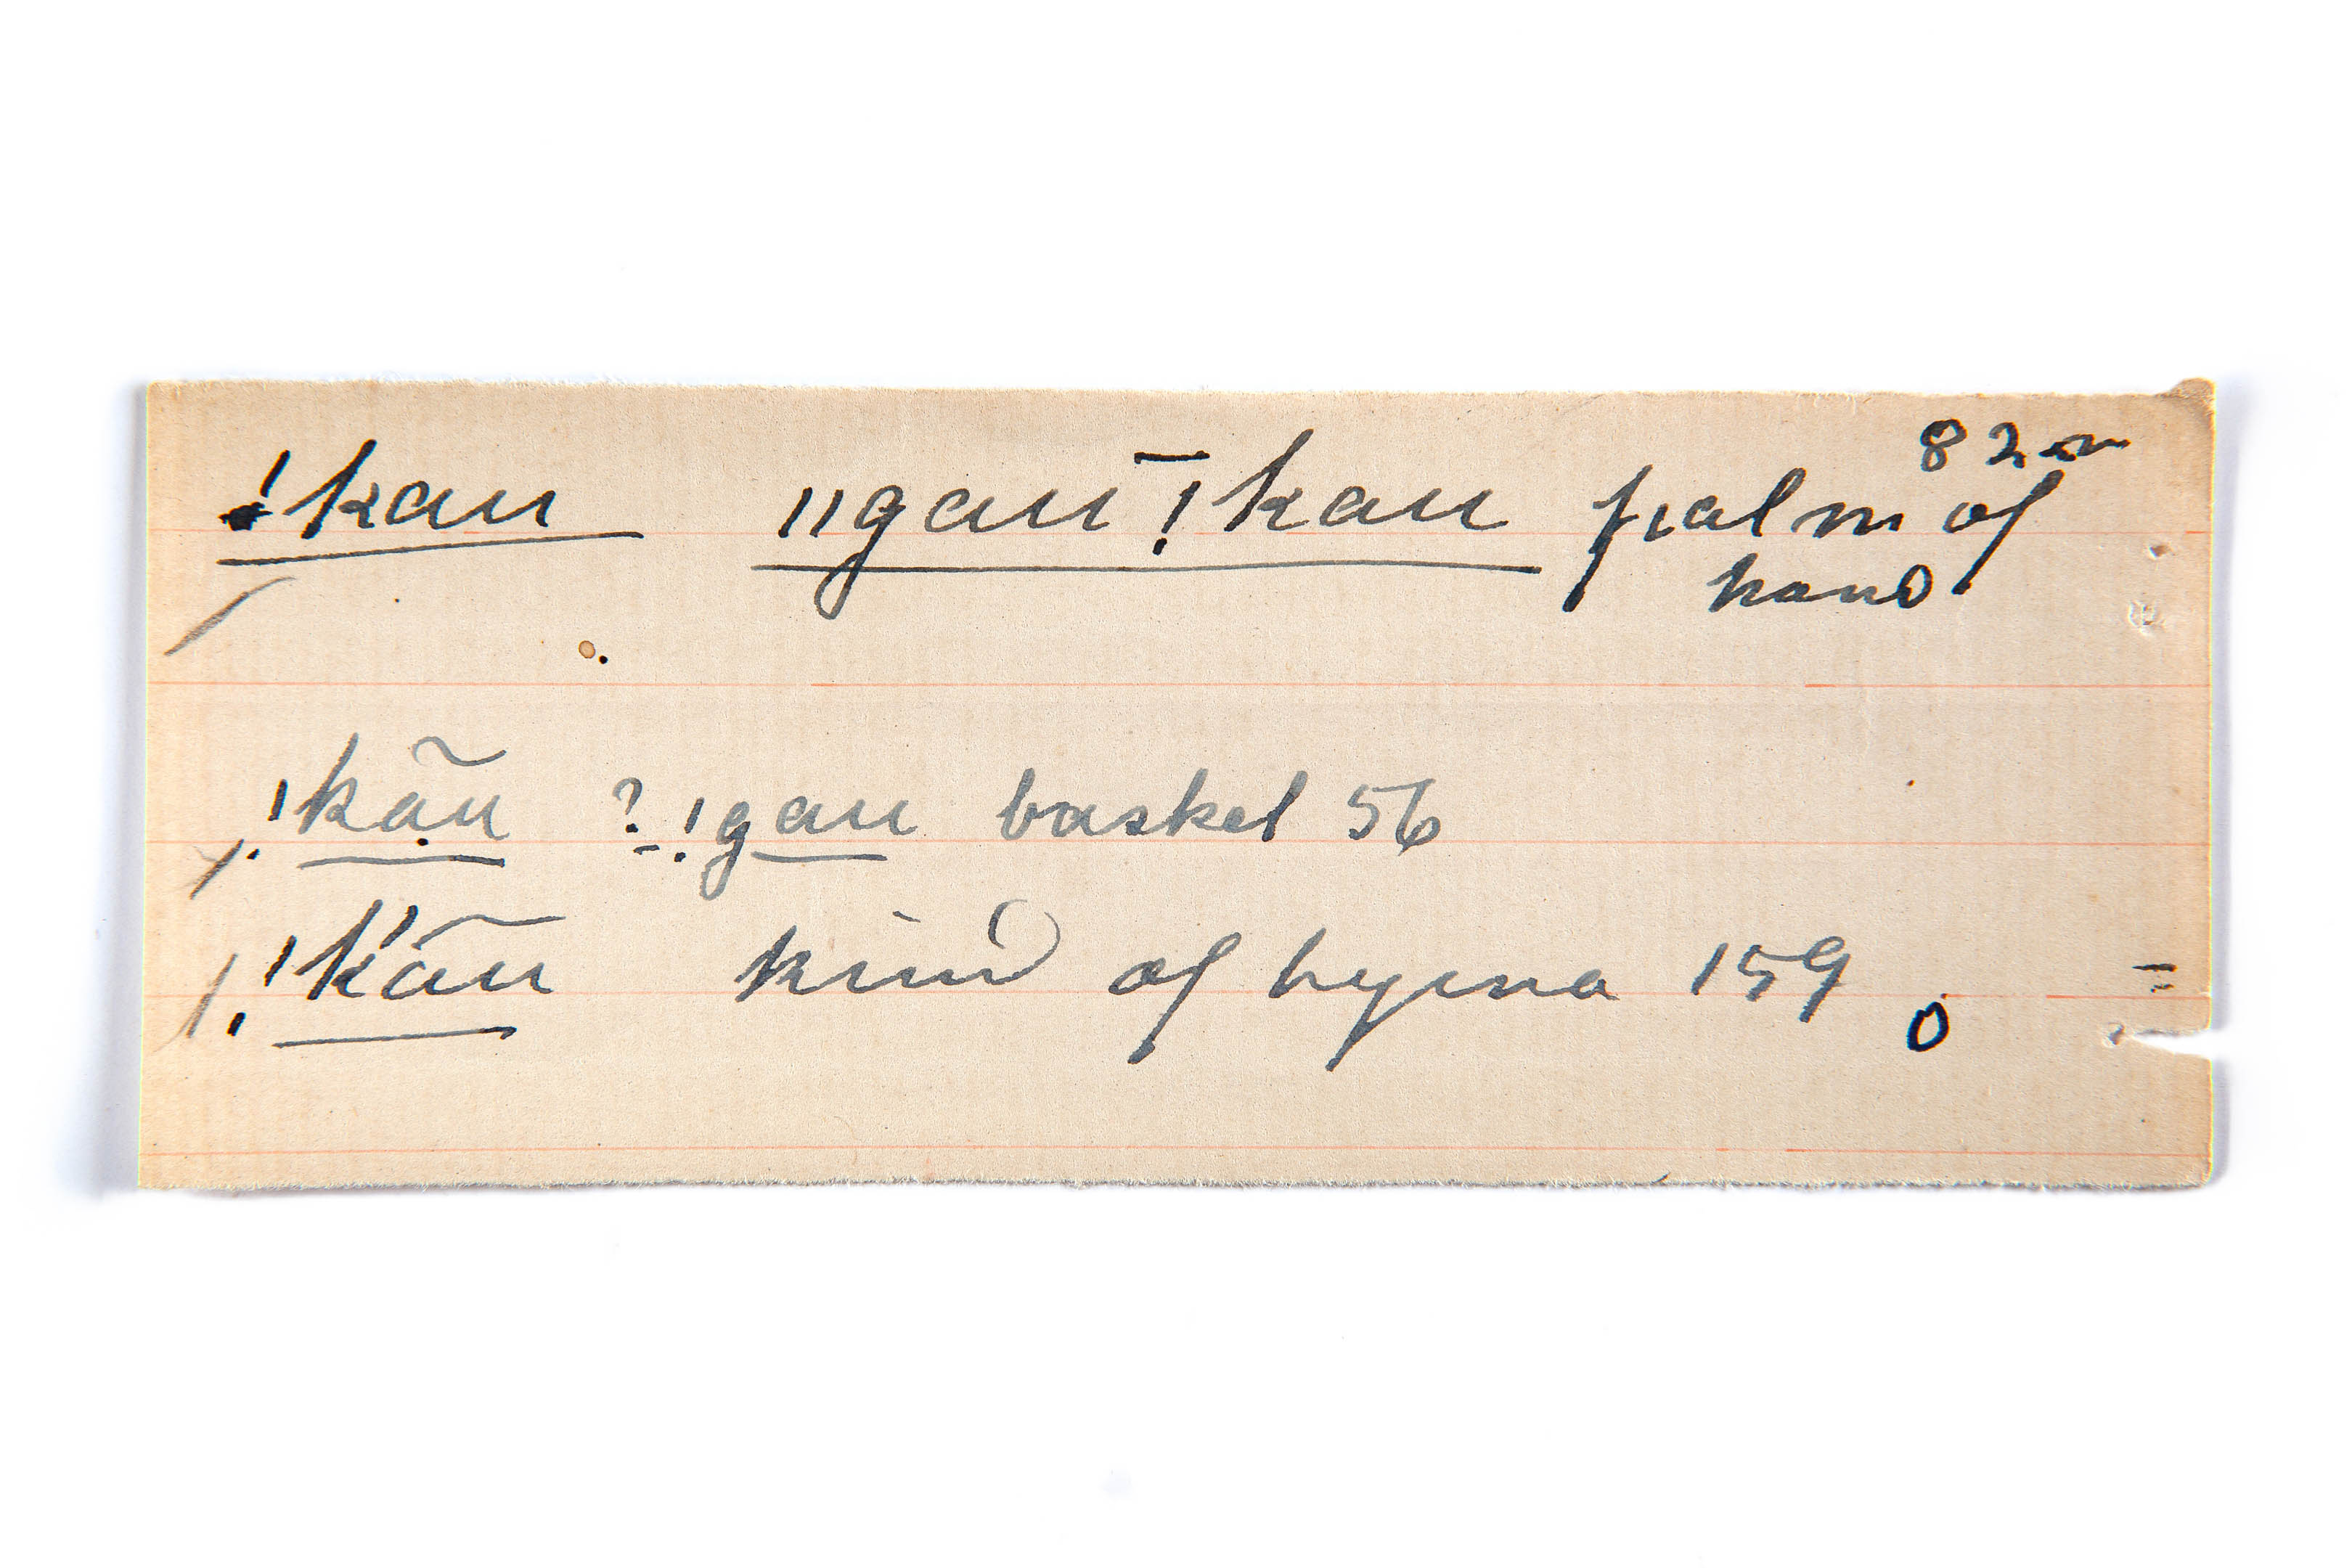 !kau ǁgau ̄!kau palm of 82
hand
!kạ̃u ? !gau basket 56
!k'ãu kind of hyena 159